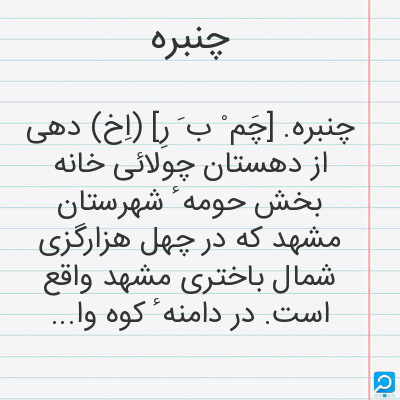 چنبره
چنبره. [چَم ْ ب َ رِ] (اِخ) دهی
از دهستان چولائی خانه
بخش حومه ٔ شهرستان
مشهد که در چهل هزارگزی
شمال باختری مشهد واقع
است. در دامنه ٔ کوه وا...